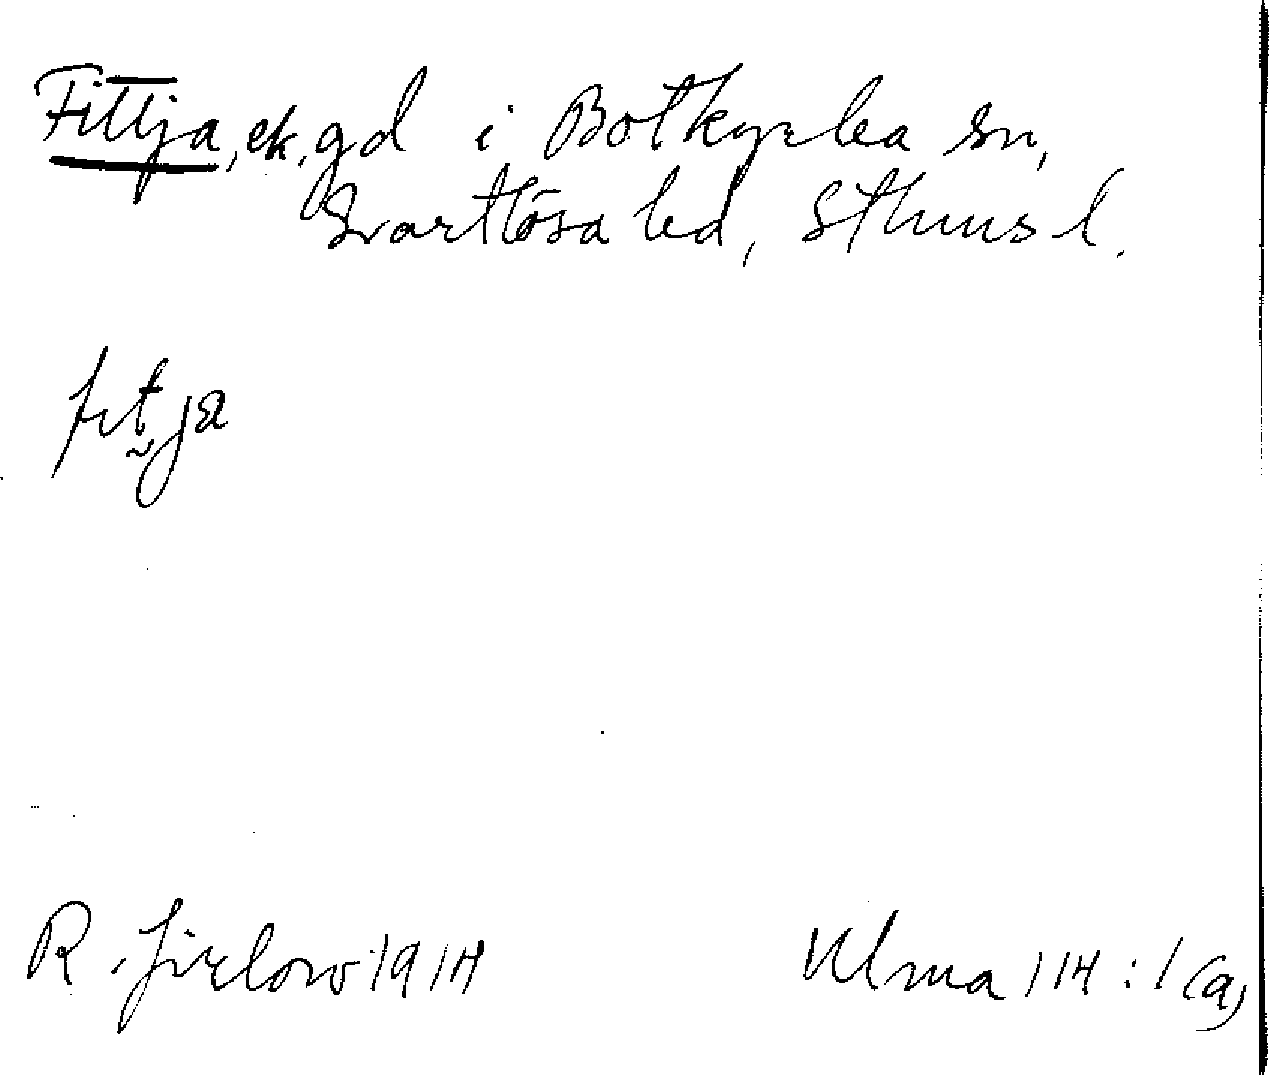 Fittja, ek, gd i Botkyrka sn,
Svartlösa hd, Sthms l.
fitja
R. Jirlow 1914
Ulma 114:1(a)